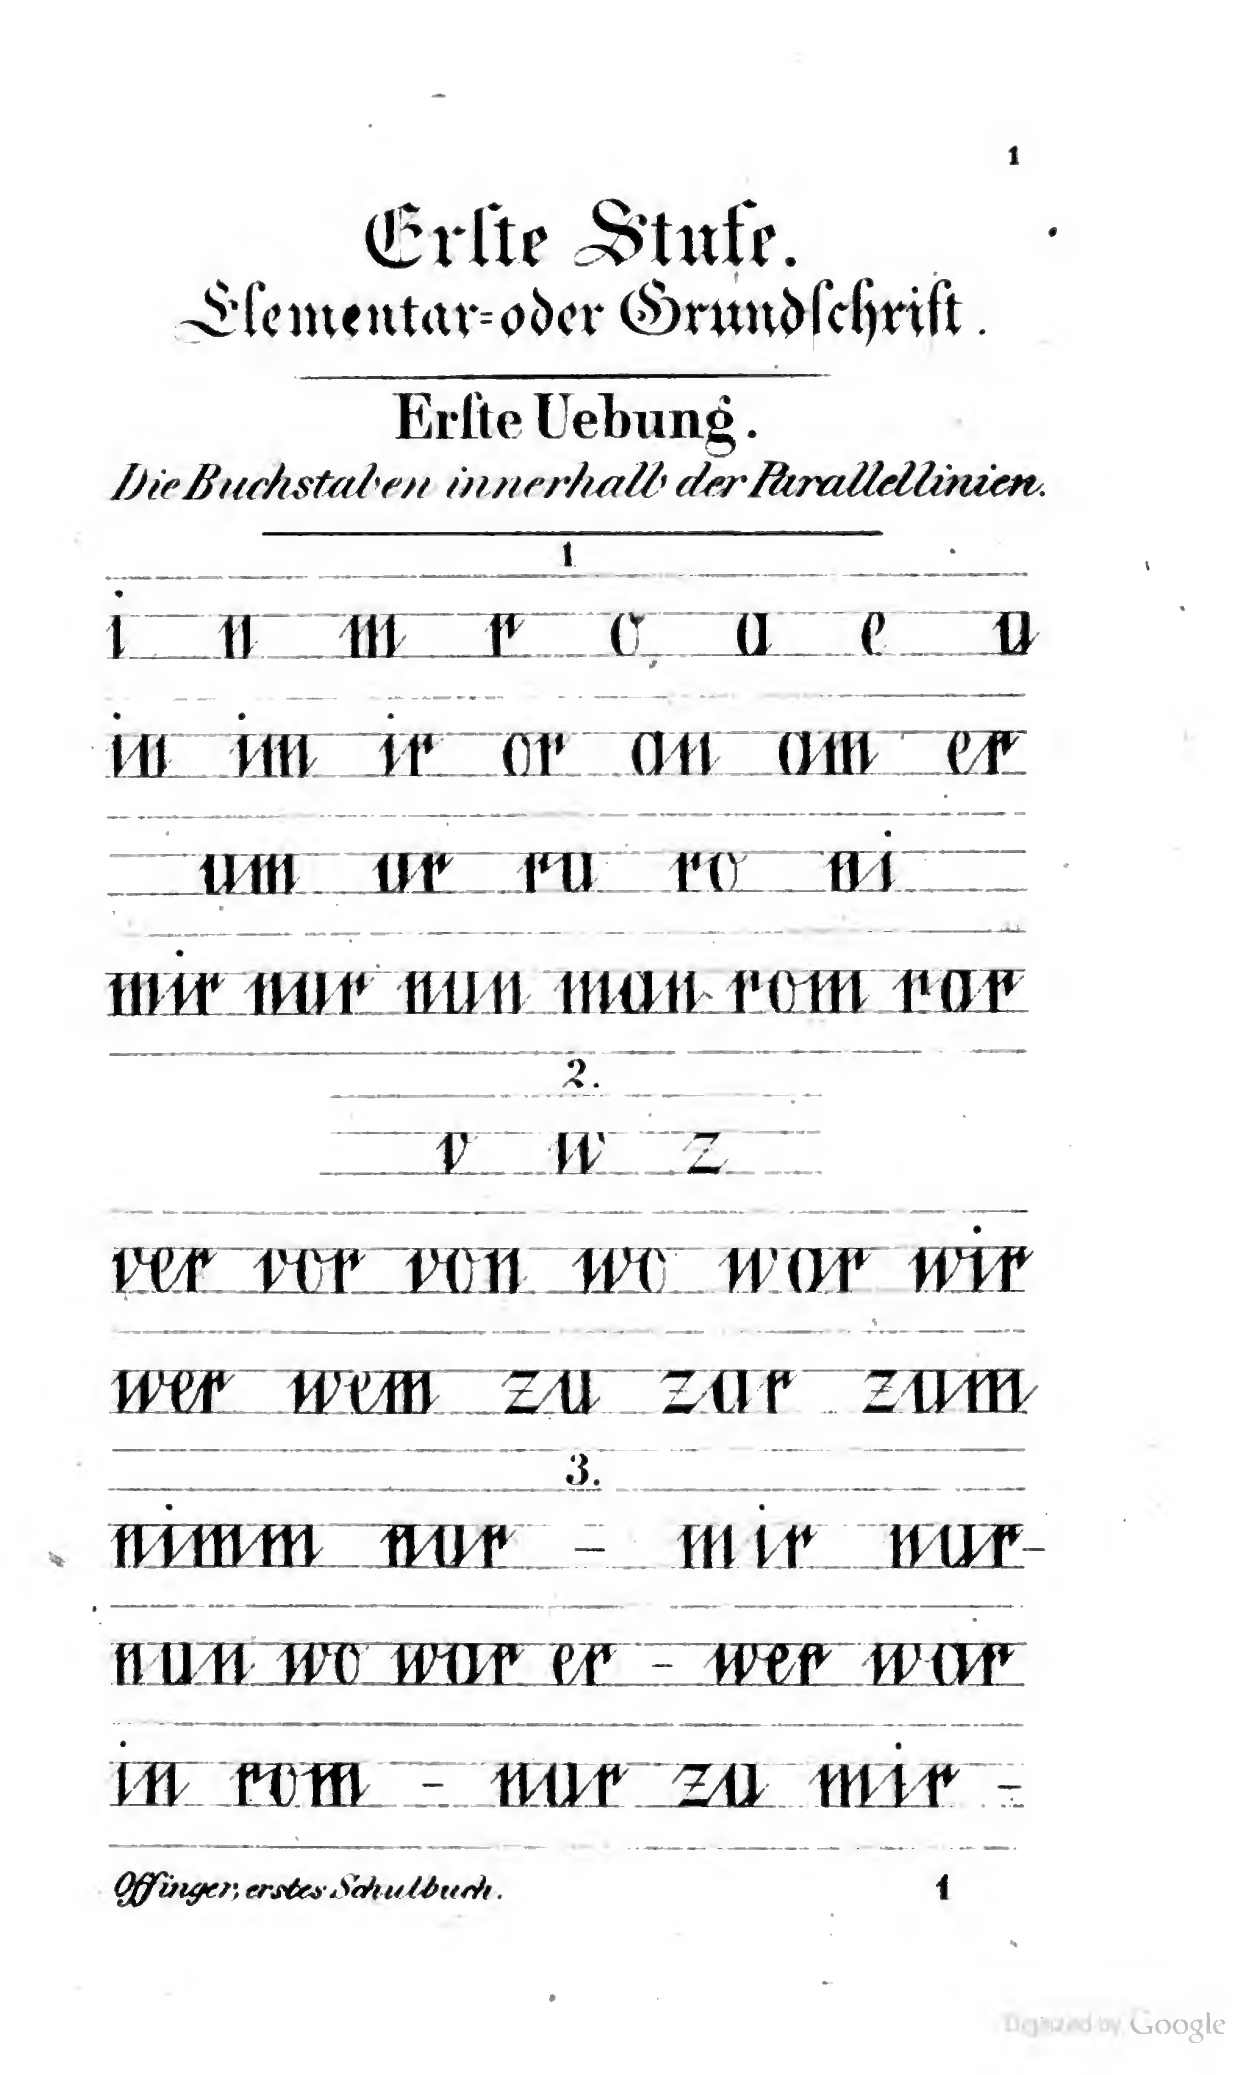 1
Erſte Stufe.
Elementar=oder Grundſchrift.
Erſte Uebung.
Die Buchstaben innerhalb der Parallellinien.
1
i n m r o a e u
in im ir or an am er
um ur ru ro ni
mir nur nun man rom rar
2.
v w z
ver vor von wo war wir
wer wem zu zur zum
3.
nimm nur – mir nur–
nun wo war er – wer war
in rom – nur zu mir –
Offinger, erstes Schulbuch. 1
Digitized by Google